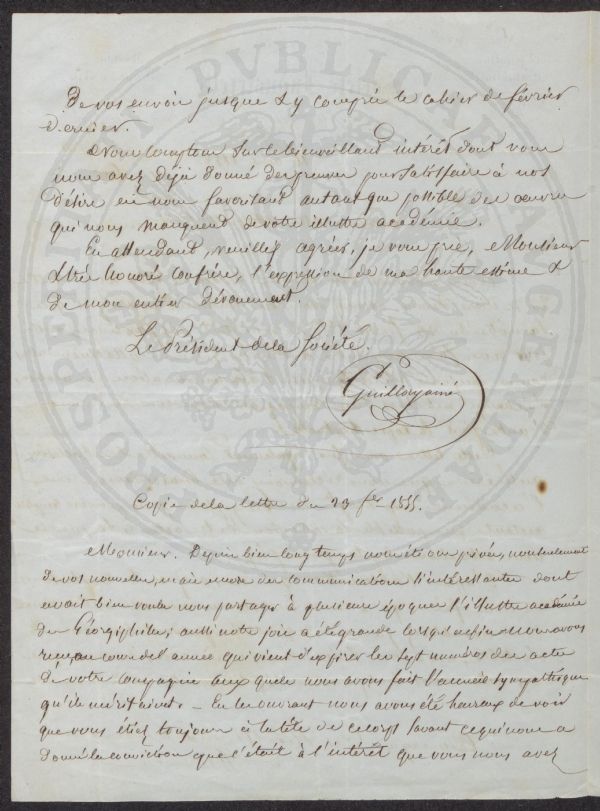 De vos envois jusque & y compris le cahier de février
dernier.
Nous comptons sur le bienveillant intérêt dont vous
nous avez déjà donné des preuves pour satisfaire à nos
désirs en nous favorisant autant que possible des œuvres
qui nous manquent de votre illustre académie.
En attendant, veuillez agréer, je vous prie, Monsieur
& très honoré confrère, l'expression de ma haute estime &
de mon entier dévouement.
Le Président de la Société.
Guillory ainé
Copie de la lettre du 23 fer 1855.
Monsieur. Depuis bien longtemps nous étions privés, non seulement
de vos nouvelles, mais encore des communications si intéressantes dont
avait bien voulu nous partager à plusieurs époques l'illustre académie
des Géorgiphiles; aussi notre joie a été grande lorsqu'enfin nous avons
reçu au cours de l'année qui vient d'expirer les sept numéros des actes
de votre compagnie auxquels nous avons fait l'accueil sympathique
qu'ils méritaient. - En les ouvrant nous avons été heureux de voir
que vous étiez toujours à la tête de ce corps savant ce qui nous a
donné la conviction que c'était à l'intérêt que vous nous avez
PROSPERITATI PUBLICAE AUGENDAE